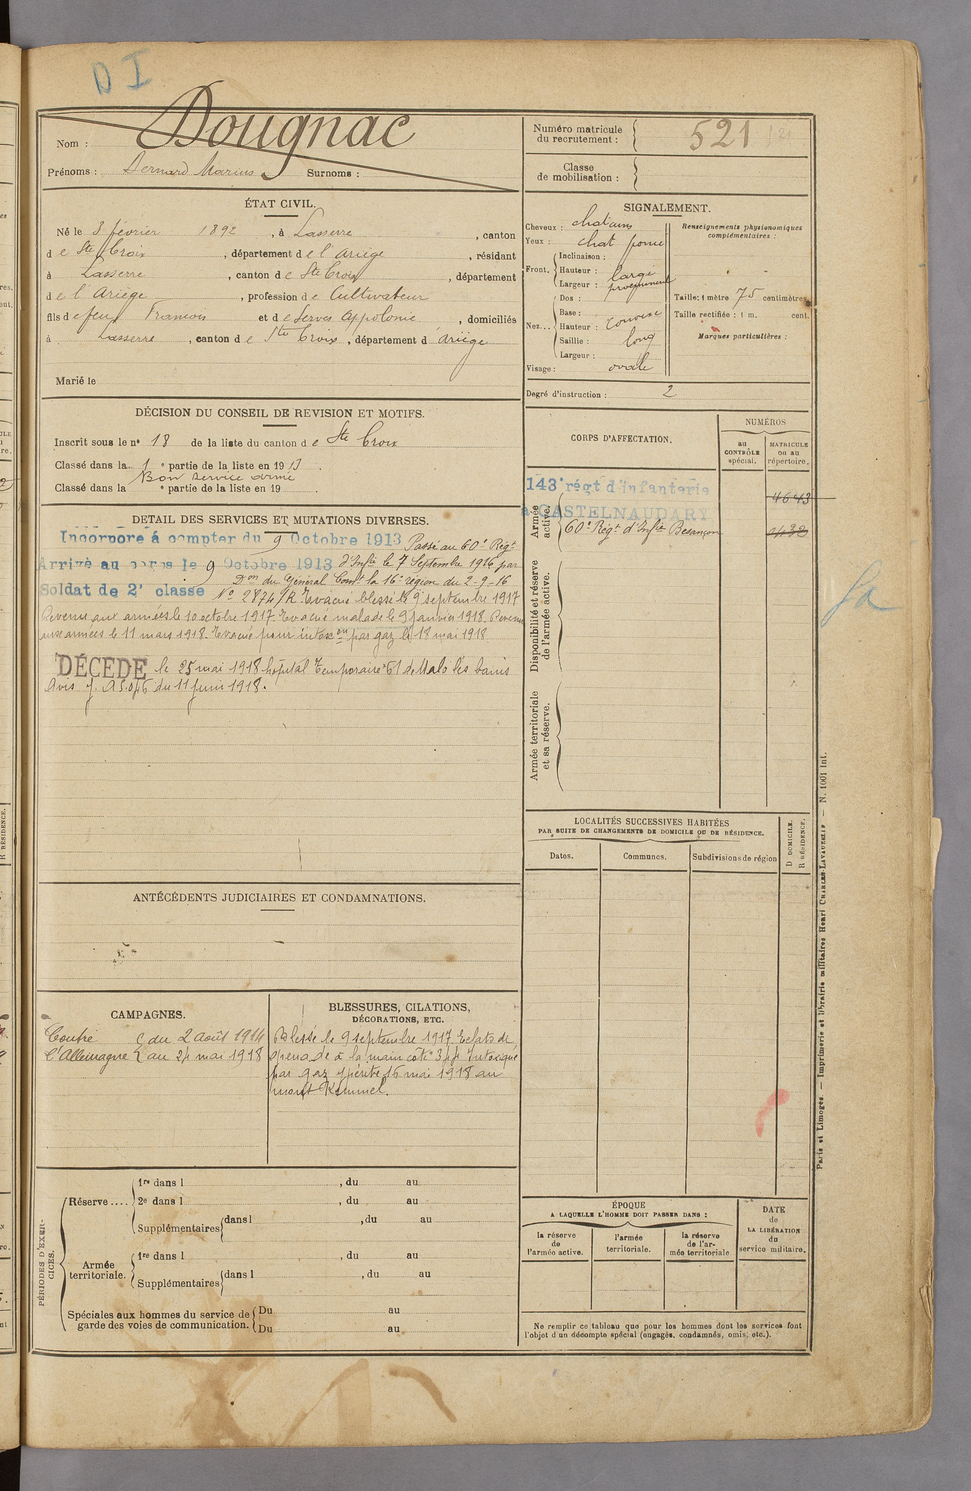 D I
Nom : Dougnac
Prénoms : Bernard Marius Surnoms :
Numéro matricule du recrutement : 521
Classe de mobilisation :
ÉTAT CIVIL.
Né le 3 février 1892, à Lasserre, canton
de Ste Croix, département de l'Ariège, résidant
à Lasserre, canton de Ste Croix, département
de l'Ariège, profession de Cultivateur
fils de feu Framois et de Serves Appolonie, domiciliés
à Lasserre, canton de Ste Croix, département d'Ariège
Marié le
SIGNALEMENT.
Cheveux : chatains
Yeux : chat
Front. Inclinaison :
Hauteur : large
Largeur : proeminent
Nez... Dos :
Base :
Hauteur : convexe
Saillie : long
Largeur :
Visage : ovale
Renseignements physionomiques complémentaires :
Taille : 1 mètre 75 centimètres
Taille rectifiée : 1 m. cent.
Marques particulières :
Degré d'instruction : 2
DÉCISION DU CONSEIL DE REVISION ET MOTIFS.
Inscrit sous le n° 18 de la liste du canton de Ste Croix
Classé dans la 1e partie de la liste en 1913.
Bon service armé
Classé dans la e partie de la liste en 19
DETAIL DES SERVICES ET MUTATIONS DIVERSES.
Incorporé à compter du 9 Octobre 1913 Passé au 60e Régt
Arrivé au corps le 9 Octobre 1913 d'Infie le 7 Septembre 1916 par
Soldat de 2e classe Don du Général Comt la 16e région du 2-9-16
No 2874/R Evacué blessé le 9 septembre 1917
Revenu aux armées le 10 octobre 1917. Evacué malade le 9 janvier 1918. Revenu
aux armées le 11 mars 1918. Evacué pour intox on par gaz le 18 mai 1918
DÉCÉDÉ le 25 mai 1918 hôpital Temporaire 61 de Malo les bains
Avis du 11 juin 1918.
CORPS D'AFFECTATION.
NUMÉROS
au CONTRÔLE spécial.
MATRICULE ou au répertoire.
Armée active.
143e régt d'infanterie
à CASTELNAUDARY
4643
60e Régt d'Infie Besançon
Disponibilité et réserve de l'armée active.
Armée territoriale et sa réserve.
Sa
LOCALITÉS SUCCESSIVES HABITÉES
PAR SUITE DE CHANGEMENTS DE DOMICILE OU DE RÉSIDENCE.
Dates.
Communes.
Subdivisions de région
D DOMICILE.
R RÉSIDENCE.
ANTÉCÉDENTS JUDICIAIRES ET CONDAMNATIONS.
CAMPAGNES.
Contre du 2 août 1914
l'Allemagne au 24 mai 1918
BLESSURES, CILATIONS, DÉCORATIONS, ETC.
Blessé le 9 septembre 1917 Eclats de
grenade à la main coté 344 Intoxiqué
par gaz ypérite 16 mai 1918 au
mont Kemmel.
PÉRIODES D'EXERCICES.
Réserve.... 1re dans l , du au
2e dans l , du au
Supplémentaires dans l , du au
Armée territoriale. 1re dans l , du au
Supplémentaires dans l , du au
Spéciales aux hommes du service de garde des voies de communication. Du au
Du au
ÉPOQUE
A LAQUELLE L'HOMME DOIT PASSER DANS :
la réserve de l'armée active.
l'armée territoriale.
la réserve de l'armée territoriale
DATE de LA LIBÉRATION du service militaire.
Ne remplir ce tableau que pour les hommes dont les services font
l'objet d'un décompte spécial (engagés, condamnés, omis, etc.).
Paris et Limoges. — Imprimerie et librairie militaires Henri CHARLES-LAVAUZELLE — N. 1001 Int.